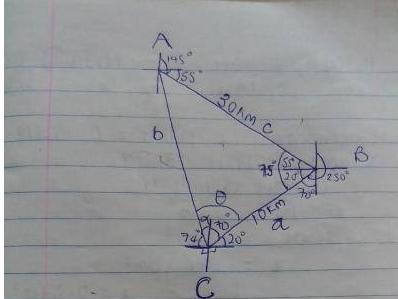 A
145°
55°
30km c
b
B
75°
55°
20°
250°
70°
θ
10km
a
70°
74°
20°
C